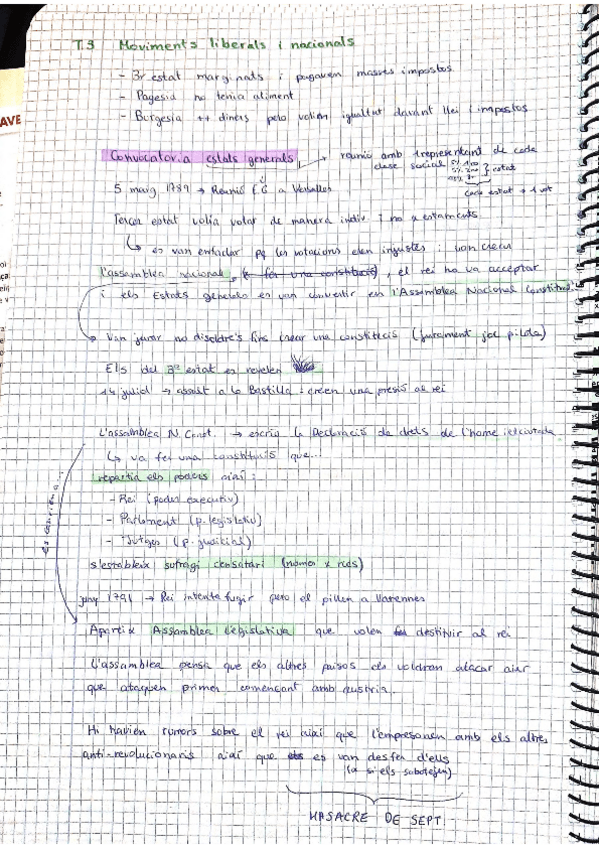 T.3 Moviments liberals i nacionals
- 3r estat marginats i pagaven masses impostos
- Pagesia no tenia aliment
- Borgesia ++ diners pelo volien igualtat davant llei i impostos
AVE
Convocatoria estats generals → reunió amb 1 representant de cada
clase social
estat
cada estat → 1 vot
5 maig 1789 → Reunió E G a Versalles
Tercer estat volia votar de manera indiv. i no x estaments
↳ es van enfadar pq les votacions eren injustes i van crear
l'assamblea nacional, (x fer una constitució), el rei ho va acceptar
i els Estats generals es van convertir en l'Assamblea Nacional Constitu.
Van jurar no disoldre's fins crear una constitució (jurament joc pilota)
Els del 3r estat es revelen
14 juliol → assalt a la Bastilla : creen una presió al rei
L'assamblea N. Const. → escriu la Declaració de drets de l'home i el ciutadà
↳ va fer una constitució que...
repartia els poders aixi:
- Rei (poder executiu)
- Parlament (p. legislatiu)
- Jutges (p. judicial)
s'estableix sufragi censatari (només x rics)
juny 1791 → Rei intenta fugir pero el pillen a Varennes
Apareix Assamblea Legislativa que volen destituir al rei
L'assamblea pensa que els altres països els voldran atacar aixi
que ataquen primer començant amb Austria.
Hi havien rumors sobre el rei aixi que l'empresonen amb els altres
anti-revolucionaris aixi que es van desfer d'ells
(x si els sabotejen)
MASACRE DE SEPT.